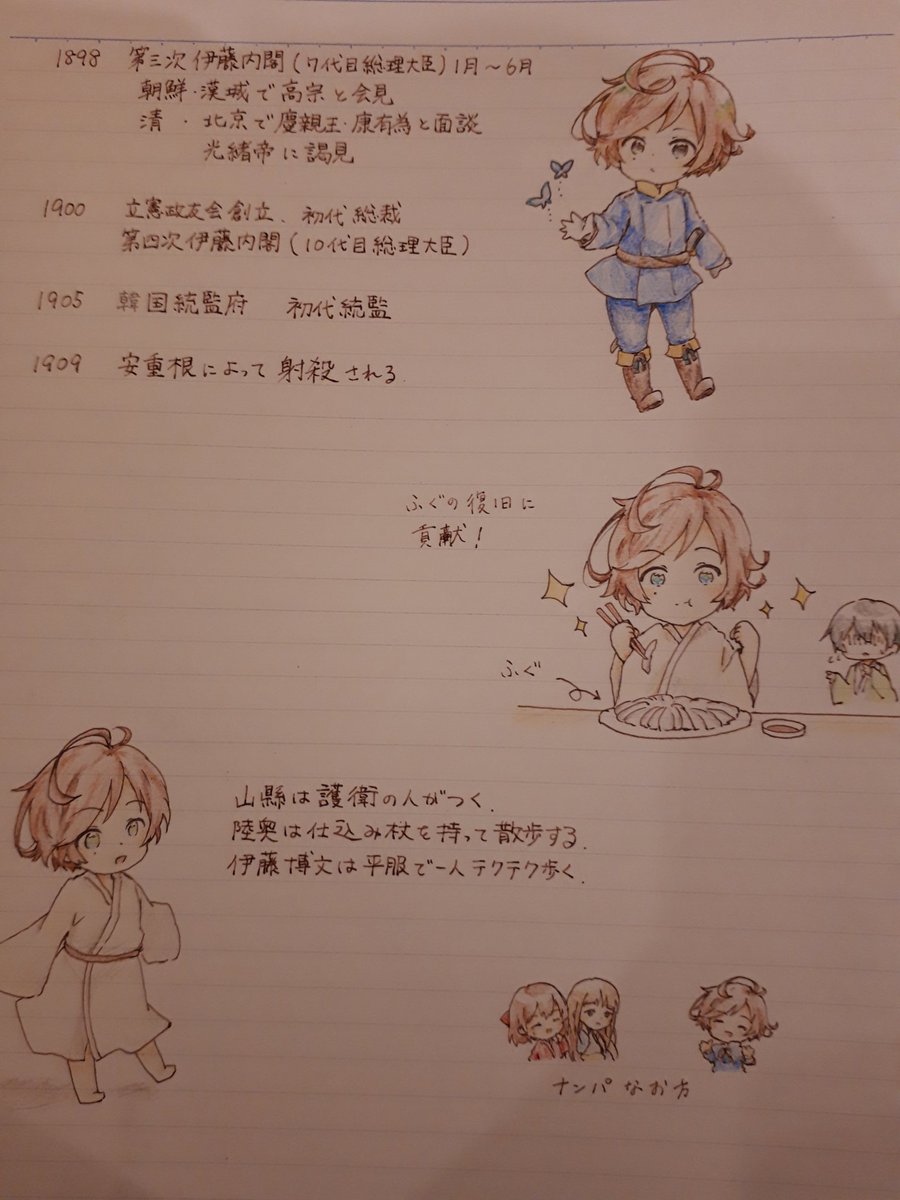 1898 第三次伊藤内閣(7代目総理大臣)1月～6月
朝鮮・漢城で高宗と会見
清・北京で慶親王・康有為と面談
光緒帝に謁見
1900 立憲政友会創立、初代総裁
第四次伊藤内閣(10代目総理大臣)
1905 韓国統監府 初代統監
1909 安重根によって射殺される.
ふぐの復旧に
貢献!
ふぐ
山縣は護衛の人がつく.
陸奥は仕込み杖を持って散歩する.
伊藤博文は平服で一人テクテク歩く.
ナンパなお方